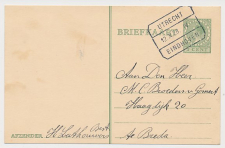 BRIEFKAART
UTRECHT
EINDHOVEN
Aan Den Heer
M. C. Broeders v. Gemert
Haagdijk 20
te Breda
AFZENDER
Best